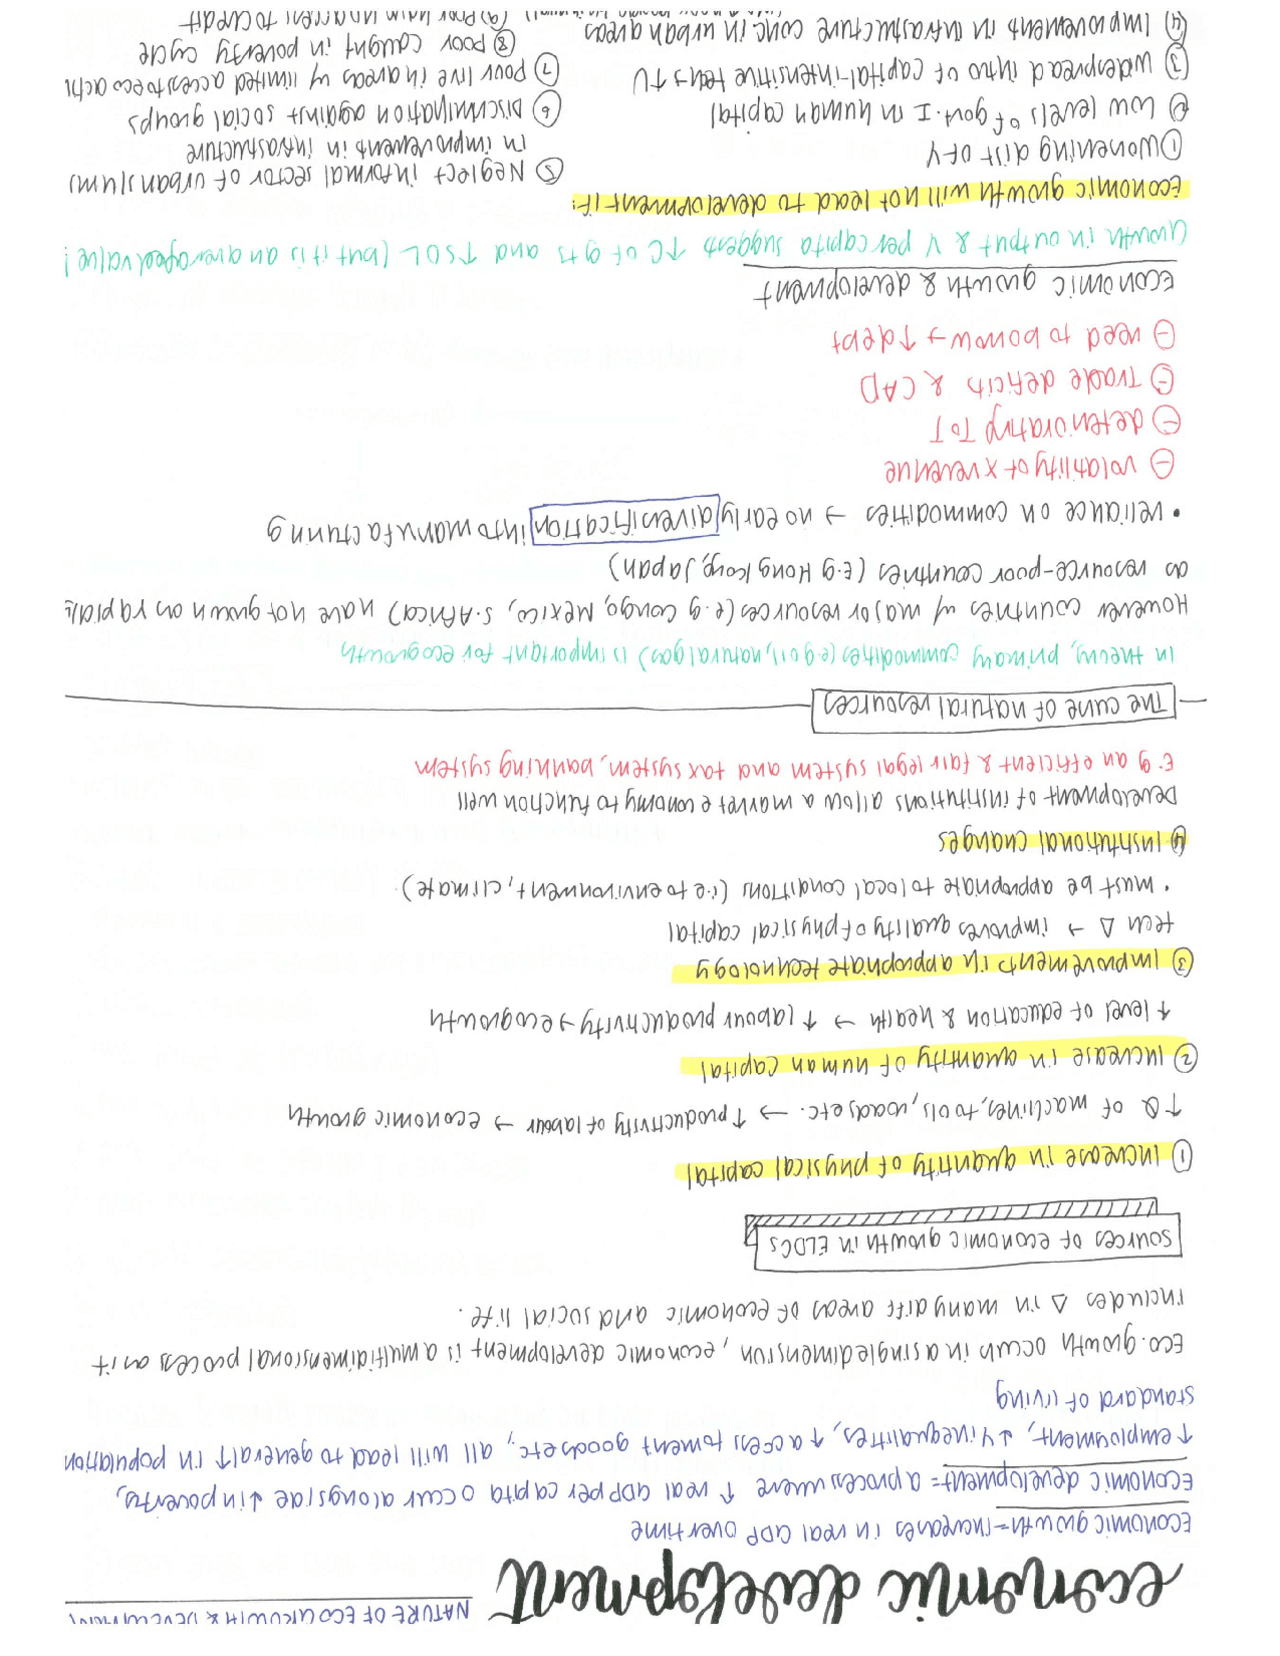 economic development
NATURE OF ECO GROWTH & DEVELOPMENT
Economic growth = increases in real GDP over time
Economic development = a process where ↑ real GDP per capita occur alongside ↓ in poverty,
↑ employment, ↓ Y inequalities, ↑ access to merit goods etc., all will lead to general ↑ in population
standard of living
Eco. growth occurs in a single dimension, economic development is a multidimensional process as it
includes Δ in many diff areas of economic and social life.
SOURCES OF ECONOMIC GROWTH IN ELDCs
① Increase in quantity of physical capital
↑ Q of machines, tools, roads etc. → ↑ productivity of labour → economic growth
② Increase in quantity of human capital
↑ level of education & health → ↑ labour productivity → eco growth
③ Improvements in appropriate technology
tech Δ → improves quality of physical capital
• must be appropriate to local conditions (i.e to environment, climate)
④ Institutional changes
Development of institutions allow a market economy to function well
E.g an efficient & fair legal system and tax system, banking system
The curse of natural resources
In theory, primary commodities (e.g oil, natural gas) is important for eco growth
However countries w/ major resources (e.g Congo, Mexico, S. Africa) have not grown as rapidly
as resource-poor countries (e.g Hong Kong, Japan)
• reliance on commodities → no early diversification into manufacturing
⊖ volatility of X revenue
⊖ deteriorating ToT
⊖ trade deficits & CAD
⊖ need to borrow → ↑ debt
Economic growth & development
Growth in output & Y per capita suggests ↑C of g+s and ↑SOL (but it is an averaged value!
Economic growth will not lead to development if:
① Worsening dist of Y
② Low levels of govt. I in human capital
③ widespread intro of capital-intensitive tech ↑U
④ Improvements in infrastructure conc. in urban areas
⑤ Neglect informal sector of urban slums
in improvements in infrastructure
⑥ Discrimination against social groups
⑦ Poor live in areas w/ limited access to eco acti
⑧ poor caught in poverty cycle
⑨ Poor have no access to credit